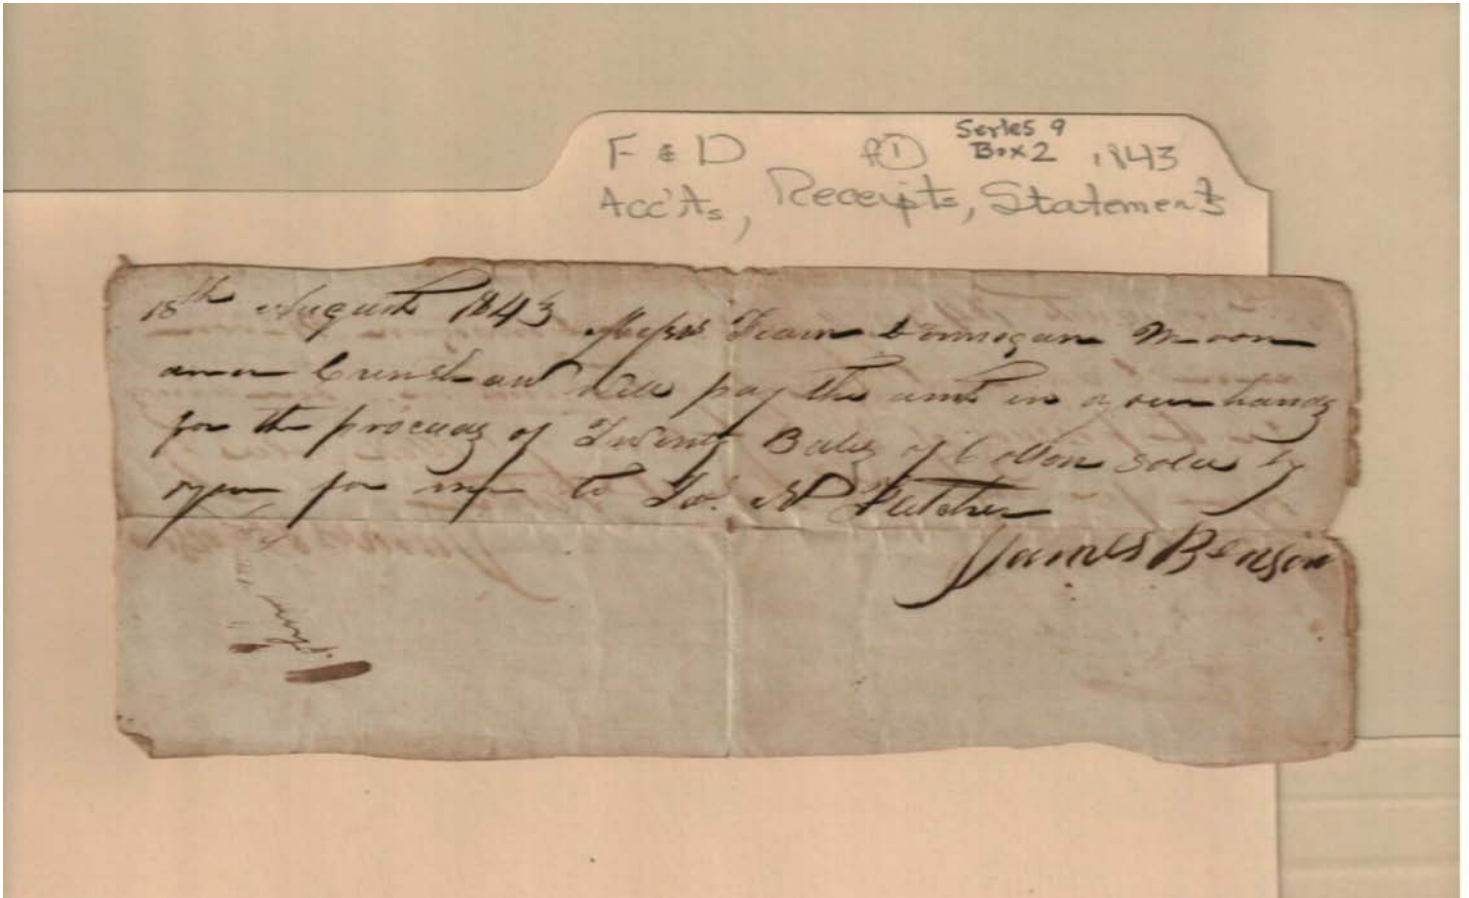 F & D f① Series 9
Box 2 1843
Acc'ts, Receipts, Statements
18th August 1843 Messrs Fearn Donnegan Moon
and Crenshaw will pay the amt in your hands
for the proceeds of Twenty Bales of Cotton sold by
you for me to Jos. N Fletcher
James Benson